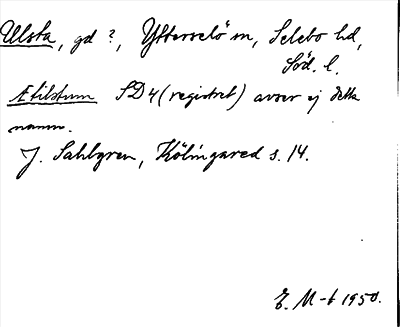 Ulsta, gd ?, Ytterselö sn, Selebo hd,
Söd. l.
Ælilstum SD 4 (registret) avser ej detta
namn.
J. Sahlgren, Kölingared s. 14.
E. M-t 1950.